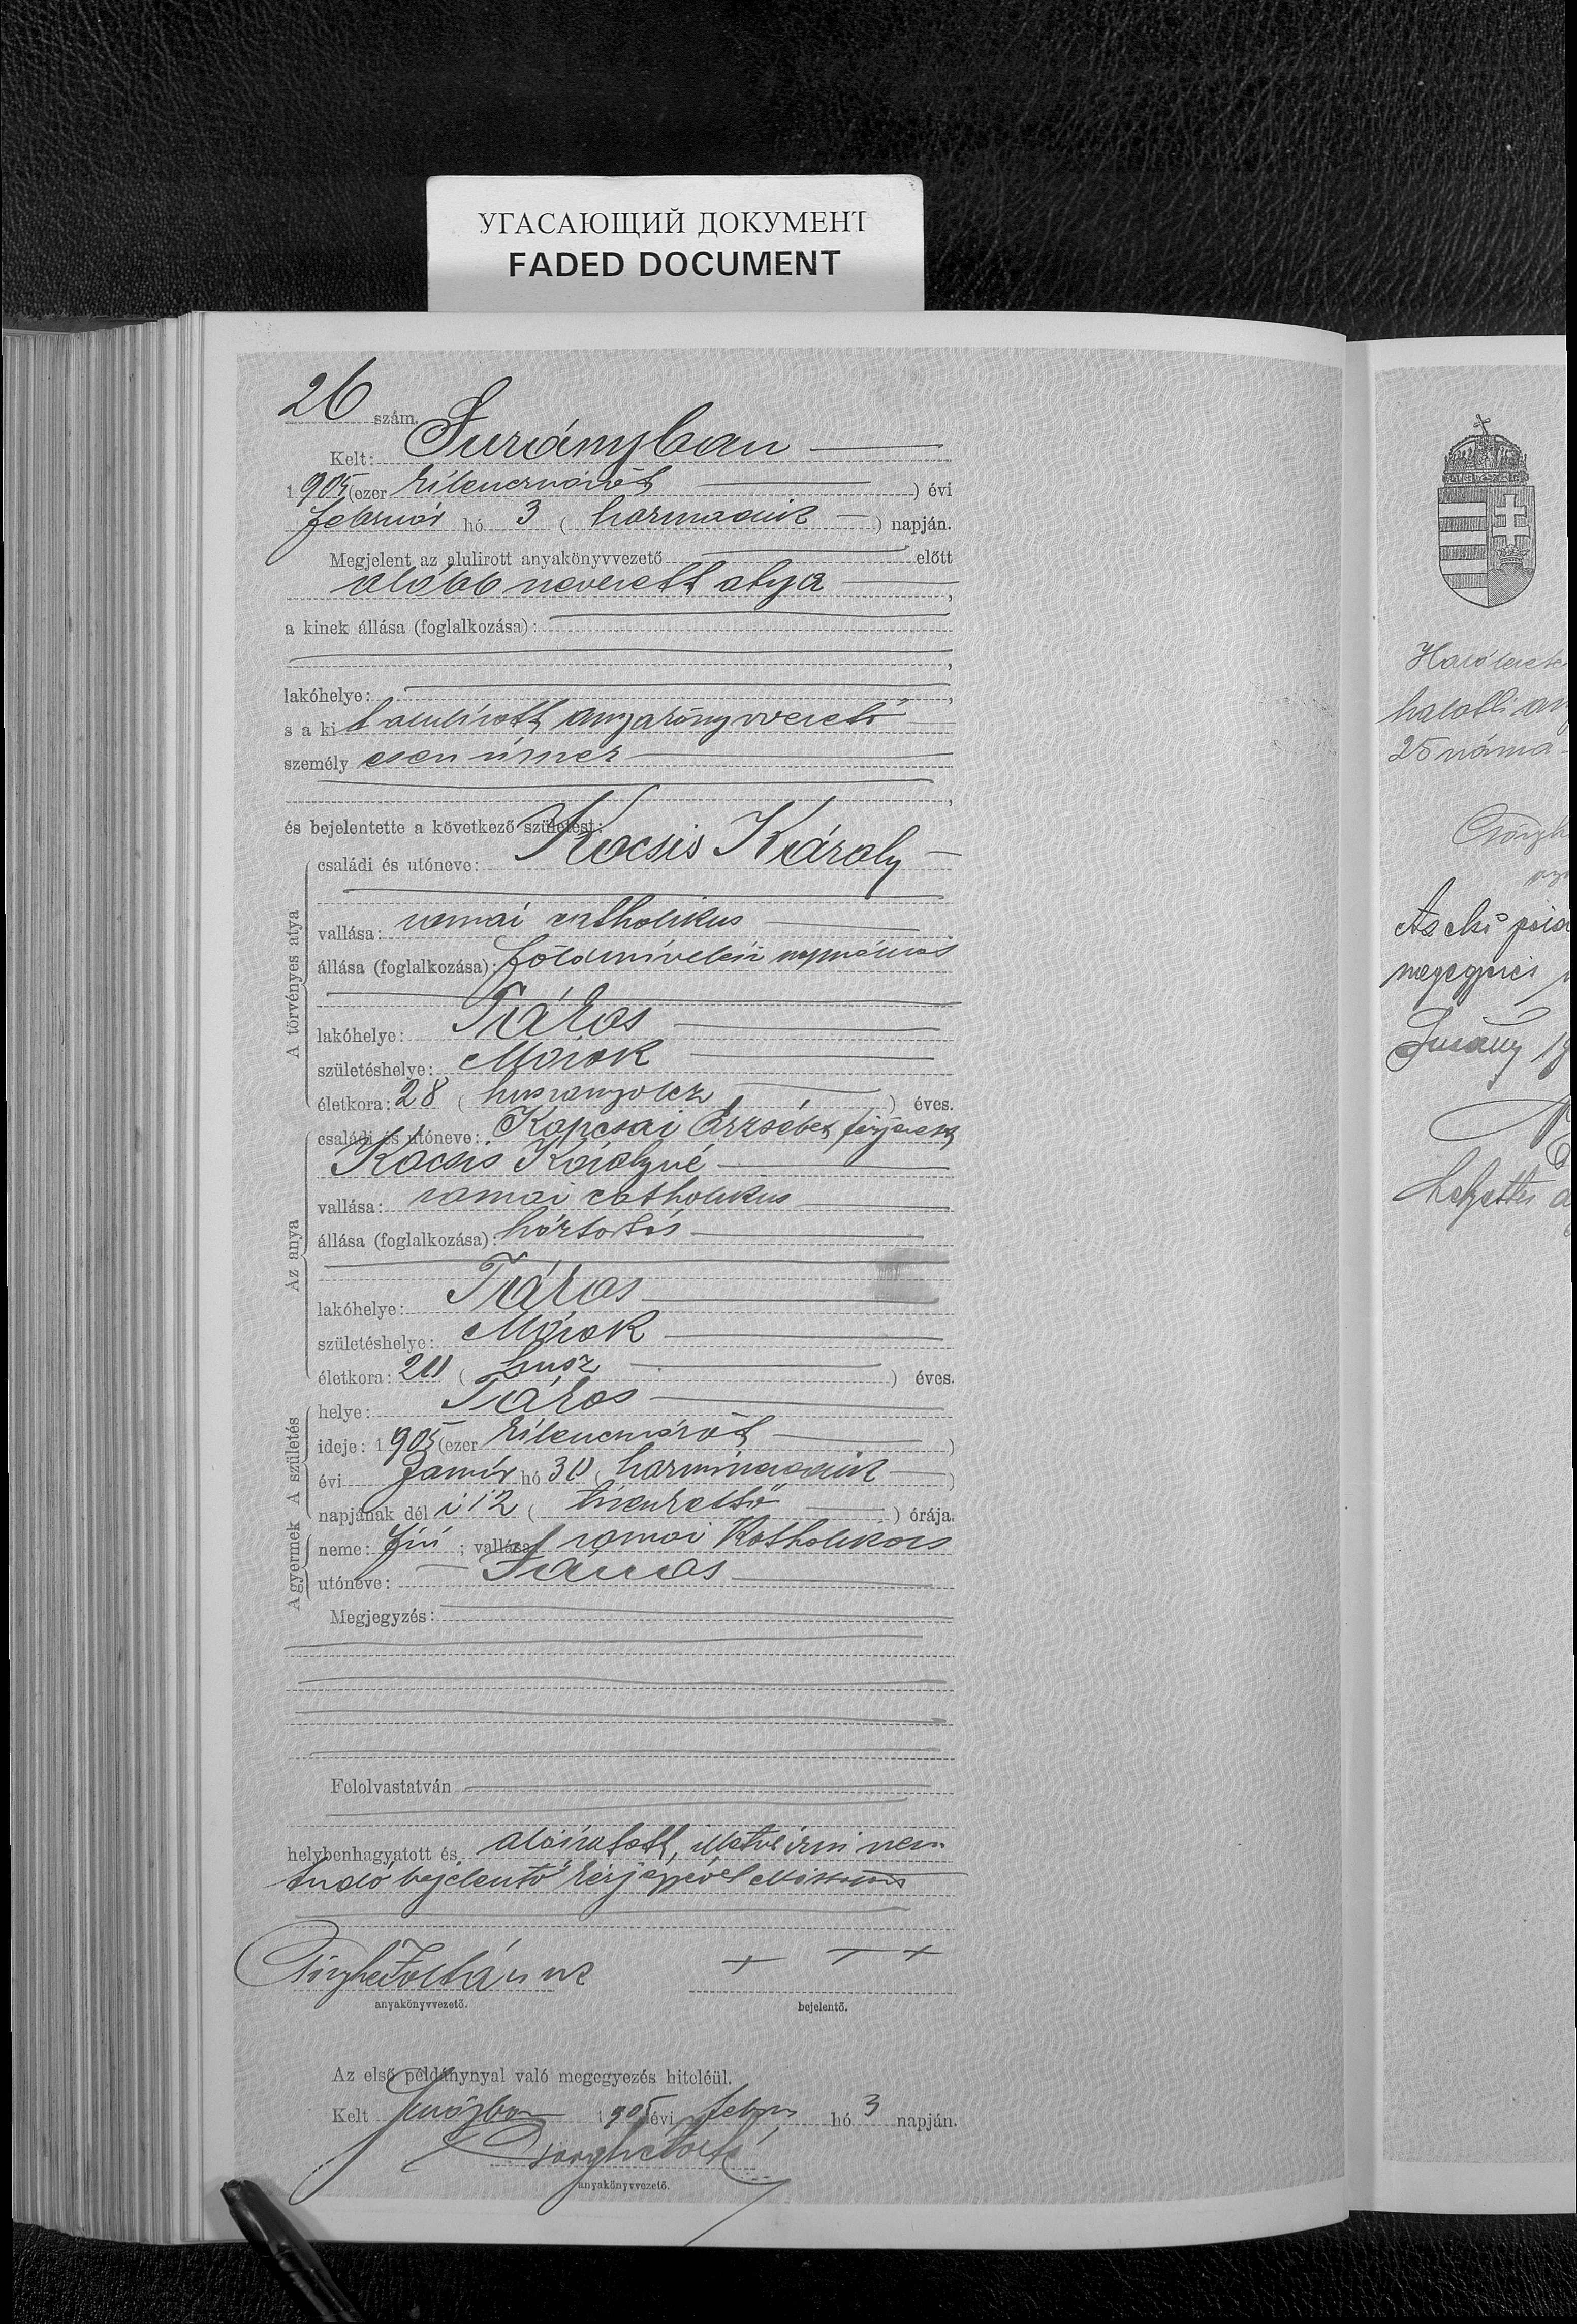 УГАСАЮЩИЙ ДОКУМЕНТ
FADED DOCUMENT
26 szám.
Kelt: Surányban
1905 (ezer kilencszázöt) évi
február hó 3 (harmadik) napján.
Megjelent az alulirott anyakönyvvezető előtt
alább nevezett atya,
a kinek állása (foglalkozása):
lakóhelye:
s a kit alulírott anyakönyvvezető
személyesen ismer
és bejelentette a következő születést:
A törvényes atya
családi és utóneve: Kocsis Károly
vallása: romai catholikus
állása (foglalkozása): földmívelési napszámos
lakóhelye:
születéshelye:
életkora: 28 (huszonyolcz) éves.
Az anya
családi és utóneve: Kapcsai Erzsébet férjezett
Kocsis Károlyné
vallása: romai catholikus
állása (foglalkozása): háztartás
lakóhelye:
születéshelye:
életkora: 20 (husz) éves.
A születés
helye:
ideje: 1905 (ezer kilencszázöt)
évi Január hó 30 (harminczadik)
napjának dél i 12 (tizenkettő) órája.
A gyermek
neme: fiú; vallása: romai Katholikus
utóneve: János
Megjegyzés:
Felolvastatván
helybenhagyatott és aláíratott, illetve írni nem
tudó bejelentő kézjegyével
Zoltán
+ + +
anyakönyvvezető. bejelentő.
Az első példánynyal való megegyezés hiteléül.
Kelt 1905 évi febr. hó 3 napján.
anyakönyvvezető.
halotti
25 száma
Az első
megegyezés
Surány 19
helyettes